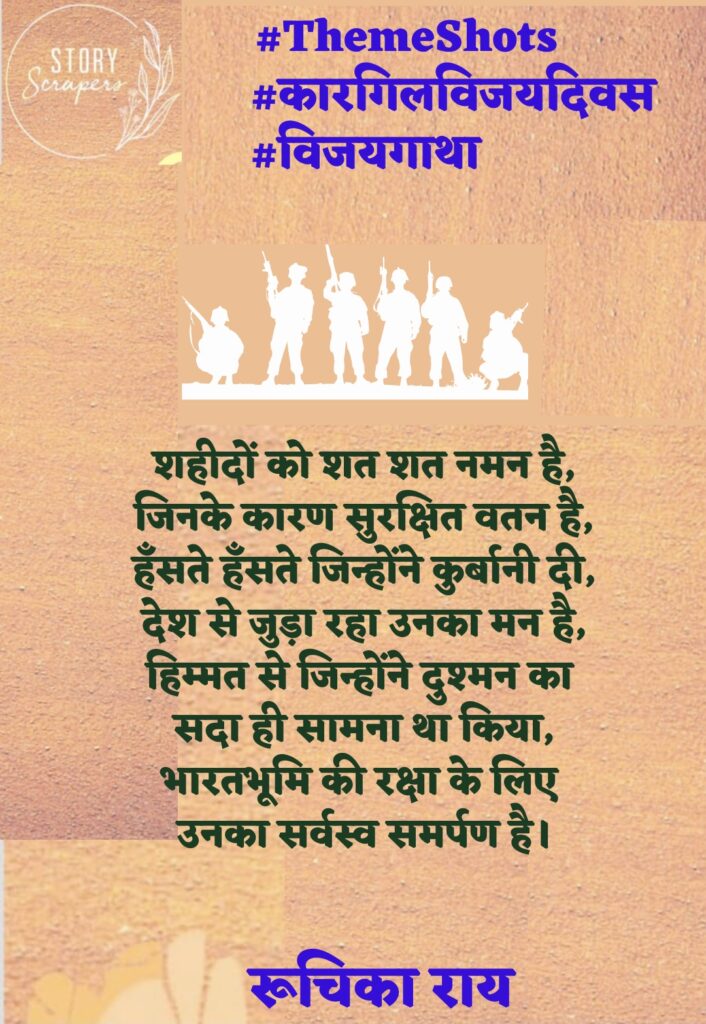 STORY
Scrapers
#ThemeShots
#कारगिलविजयदिवस
#विजयगाथा
शहीदों को शत शत नमन है,
जिनके कारण सुरक्षित वतन है,
हँसते हँसते जिन्होंने कुर्बानी दी,
देश से जुड़ा रहा उनका मन है,
हिम्मत से जिन्होंने दुश्मन का
सदा ही सामना था किया,
भारतभूमि की रक्षा के लिए
उनका सर्वस्व समर्पण है।
रूचिका राय